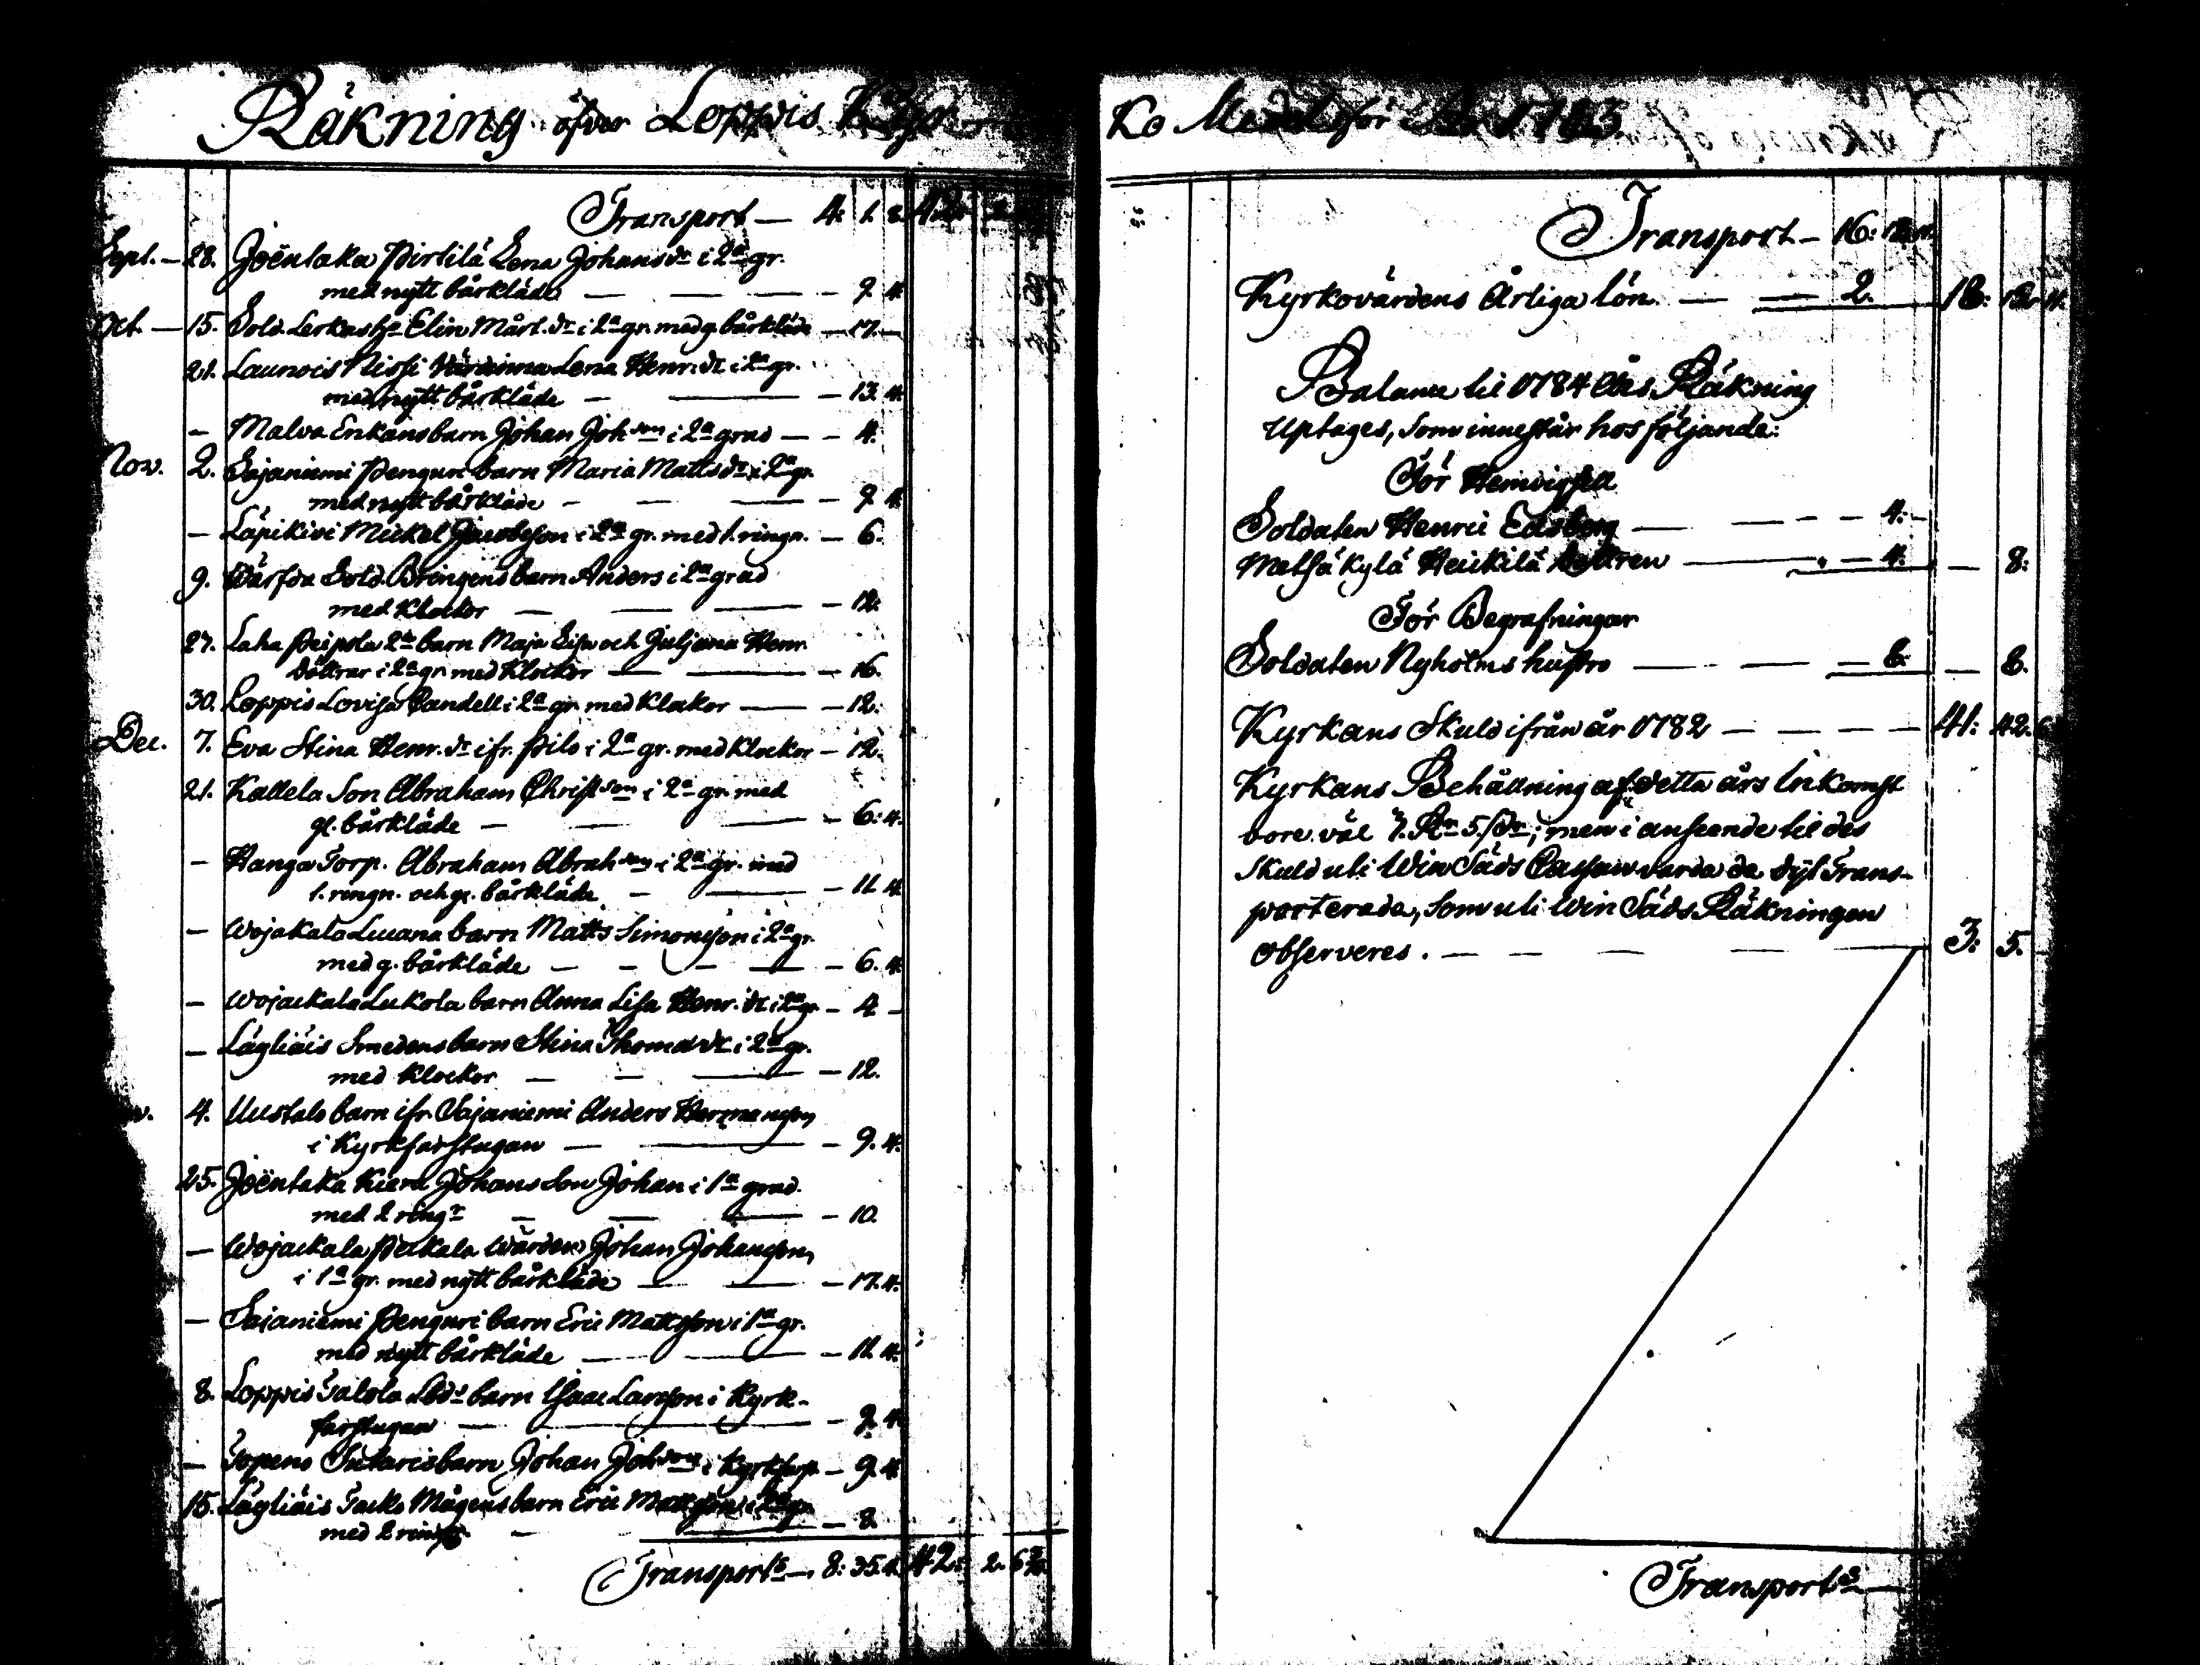 Räkning öfver Loppis Kyr-
Transport — 4: 1. 2.
Sept. — 28. Joëntaka Pirtilä Lena Johansdr i 2a gr.
med nytt bårkläde — — — 9. 4.
Oct. — 15. Sold. Lerkas ho Elin Mårt.dr i 2a gr. med g. bårkläde — 17. —
21. Launois Nissi Värdinna Lena Henr.dr i 2a gr.
med nytt bårkläde — — 13. 4.
— Malva Enkans barn Johan Johson i 2a grad — — 4.
Nov. 2. Sajaniemi Penguri barn Maria Mattsdr i 2a gr.
med nytt bårkläde — — — 9. 4.
— Läpikivi Mickel Jacobsson i 2a gr. med 1. ringn. — 6.
9. Sold. Bringens barn Anders i 2a grad
med Klockor — — — 12.
27. Laha Peipola 2ne barn Maja Lisa och Juliana Henr.
döttrar i 2a gr. med Klockor — — 16.
30. Loppis Lovisa Pandell i 2a gr. med Klockor — — 12.
Dec. 7. Eva Stina Henr.dr ifr. Pilo i 2a gr. med Klockor — 12.
21. Kallela Son Abraham Christson i 2a gr. med
gl. bårkläde — — — 6: 4.
— Hanga Torp. Abraham Abrahson i 2a gr. med
1. ringn. och gl. bårkläde — — 11. 4.
— Wojakala barn Matts Simonsson i 2a gr.
med g. bårkläde — — — — 6. 4.
— Wojackala Lukola barn Anna Lisa Henr.dr i 2a gr. — 4 —
— Lägliäis Smedens barn Stina Thomasdr i 2a gr.
med Klockor — — — 12.
4. Uustalo barn ifr. Sajaniemi Anders Hermansson
i Kyrkfarstugan — — 9. 4.
25. Joëntaka Kiera Johans Son Johan i 1a grad.
med 2 ringr — — — 10.
— Wojackala Peckala Wärden Johan Johansson
i 1a gr. med nytt bårkläde — — 17. 4.
— Sajaniemi Penguri barn Eric Mattsson i 1a gr.
med nytt bårkläde — — 11. 4.
8. Loppis Talola barn Isaac Larsson i Kyrk-
farstugan — — 9. 4.
— Topeno barn Johan Johson i Kyrkfarst. — 9. 4.
15. Lägliäis Tacko Mågens barn Eric Mattsson i 2a gr.
med 2 ringr — — 8.
Transports — 8: 35. 4. 42: 2. 6
Ko Medel för År 1783.
Transport — 16: 12. 11.
Kyrkovärdens Årliga lön — — 2. 18: 12. 11.
Balance til 1784 Års Räkning
Uptages, Som innestår hos följande:
För Hemvigsel
Soldaten Henric Edsberg — — — — 4: —
Metsäkylä Heickilä — — 4. — 8:
För Begrafningar
Soldaten Nyholms hustro — — — 6: — 6.
Kyrkans Skuld ifrån år 1782 — — — — 41: 42.
Kyrkans Behållning af detta års Inkomst
bore väl 7. Rr 5. sk; men i anseende til des
skuld uti Win Säds Cassan varda de dyt Trans-
porterade, Som uti Win Säds Räkningen
observeres. — — — — 3: 5. —
Transports —